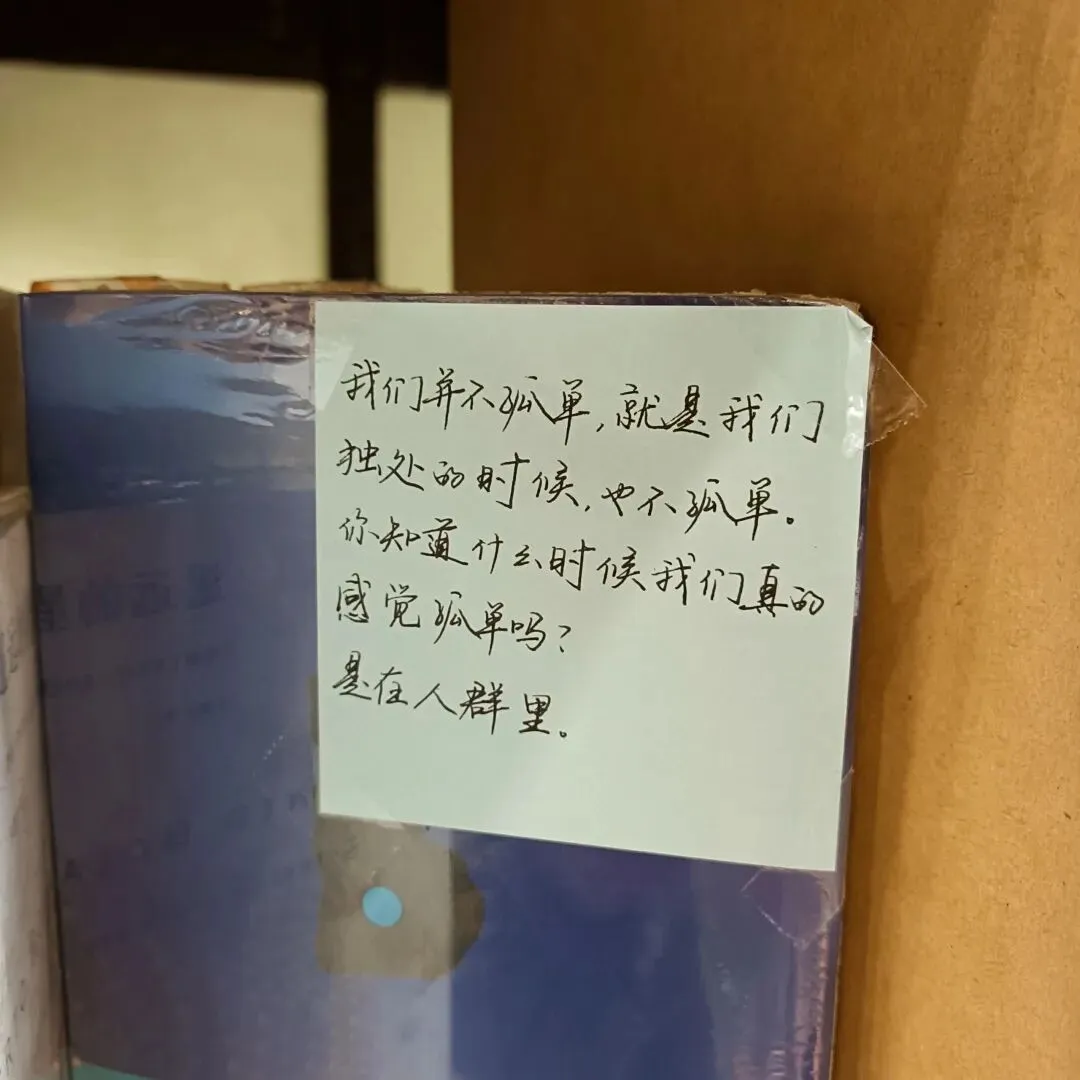 我们并不孤单,就是我们
独处的时候,也不孤单。
你知道什么时候我们真的
感觉孤单吗?
是在人群里。